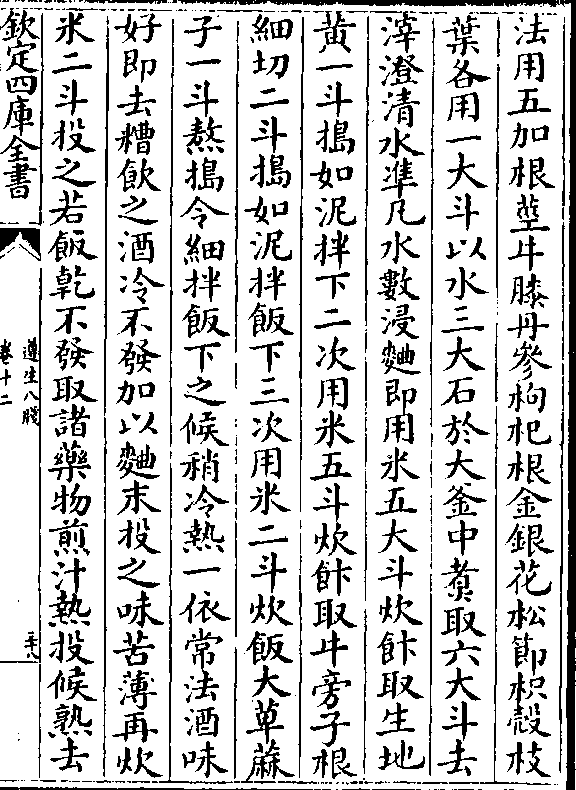 法用五加根莖牛膝丹參枸杞根金銀花松節枳殼枝
葉各用一大斗以水三大石於大釜中煮取六大斗去
滓澄清水準凡水數浸麯即用米五大斗炊飰取生地
黃一斗搗如泥拌下二次用米五斗炊飰取牛旁子根
細切二斗搗如泥拌飯下三次用米二斗炊飯大草蔴
子一斗熬搗令細拌飯下之候稍冷熱一依常法酒味
好即去糟飲之酒冷不發加以麯末投之味苦薄再炊
米二斗投之若飯乾不發取諸藥物煎汁熱投候熟去
欽定四庫全書
遵生八牋
卷十二